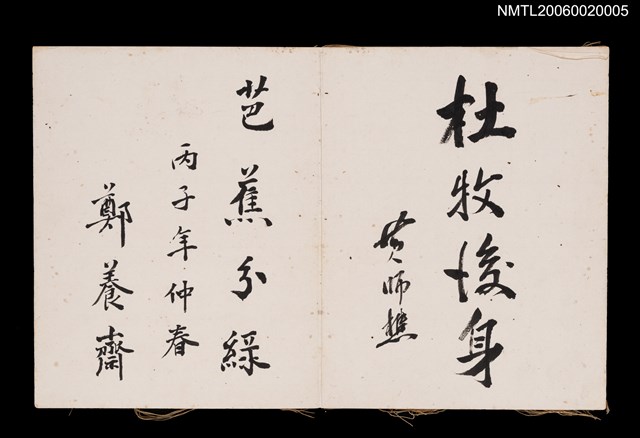 NMTL20060020005
杜牧後身
黄師樵
芭蕉分綠
丙子年仲春
鄭養齋